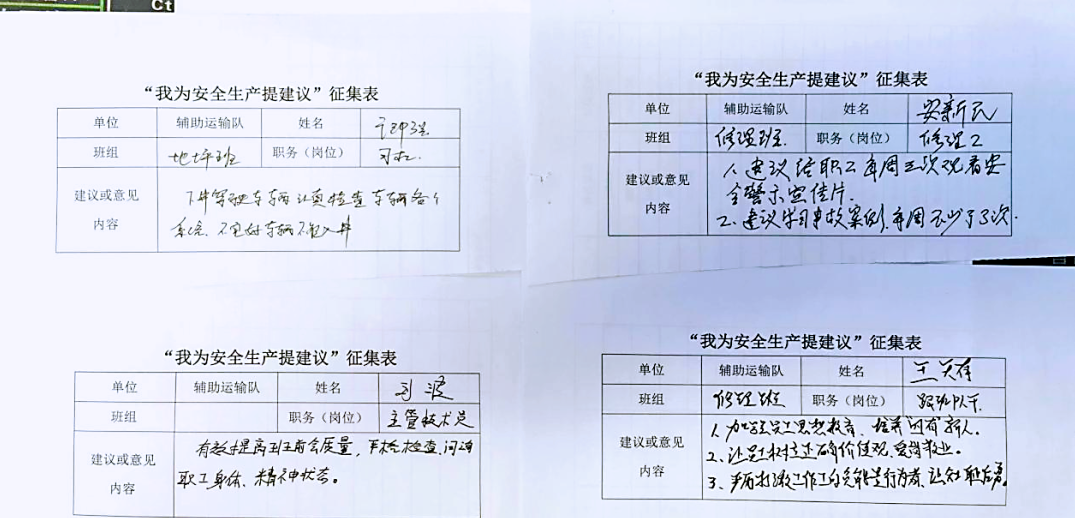 Ct
“我为安全生产提建议”征集表
单位 辅助运输队 姓名
班组 地坪班 职务（岗位） 司机
建议或意见
内容
下井驾驶车辆认真检查车辆各个
系统 不完好车辆不入井
“我为安全生产提建议”征集表
单位 辅助运输队 姓名 安新民
班组 修理班 职务（岗位） 修理工
建议或意见
内容
1、建议给职工每周三次观看安
全警示宣传片.
2、建议学习事故案例,每周不少于3次.
“我为安全生产提建议”征集表
单位 辅助运输队 姓名 刘波
班组 职务（岗位） 主管技术员
建议或意见
内容
有效提高班前会质量，严格检查、问询
职工身体、精神状态。
“我为安全生产提建议”征集表
单位 辅助运输队 姓名 王
班组 修理班 职务（岗位） 跟班队干
建议或意见
内容
1、加强员工思想教育、培养 新人.
2、让员工树立正确价值观,爱岗敬业。
3、严厉打 工作 行为 让